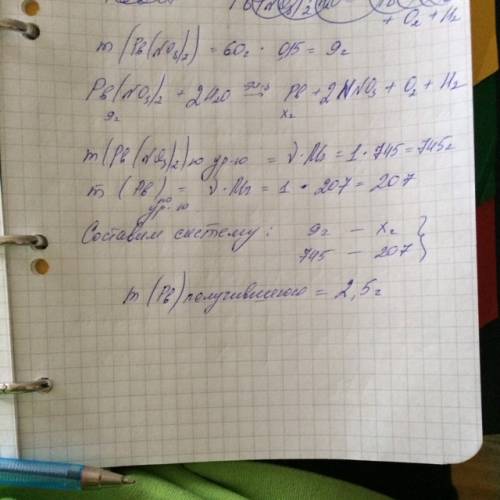 + O₂ + H₂
m (Pb(NO₃)₂) = 60г · 0,15 = 9г
Pb(NO₃)₂ + 2H₂O = Pb + 2HNO₃ + O₂ + H₂
9г xг
m(Pb(NO₃)₂) по ур-ю = ν·Mr = 1 · 745 = 745г
m (Pb) по ур-ю = ν·Mr = 1 · 207 = 207
Составим систему: 9г — xг
745 — 207
m (Pb) получившегося = 2,5г